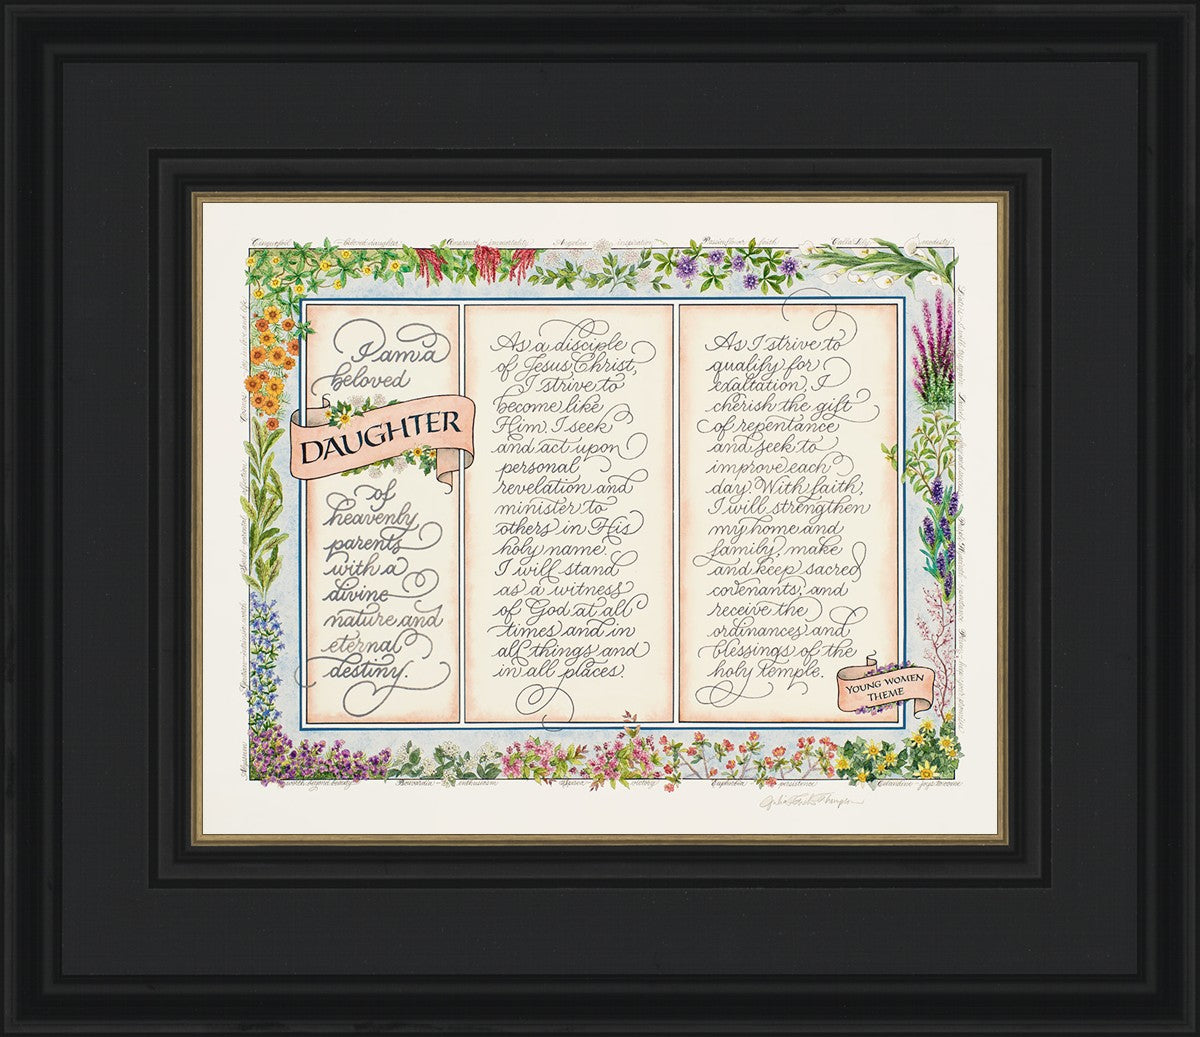 Cinquefoil - beloved daughter Amaranth - immortality Angelica - inspiration Passionflower - faith Calla Lily - modesty
I am a
beloved
DAUGHTER
of
heavenly
parents
with a
divine
nature and
eternal
destiny.
As a disciple
of Jesus Christ,
I strive to
become like
Him. I seek
and act upon
personal
revelation and
minister to
others in His
holy name.
I will stand
as a witness
of God at all
times and in
all things and
in all places.
As I strive to
qualify for
exaltation, I
cherish the gift
of repentance
and seek to
improve each
day. With faith,
I will strengthen
my home and
family, make
and keep sacred
covenants, and
receive the
ordinances and
blessings of the
holy temple.
YOUNG WOMEN
THEME
worth beyond beauty Bouvardia - enthusiasm victory Euphorbia - persistence Celandine - joys to come